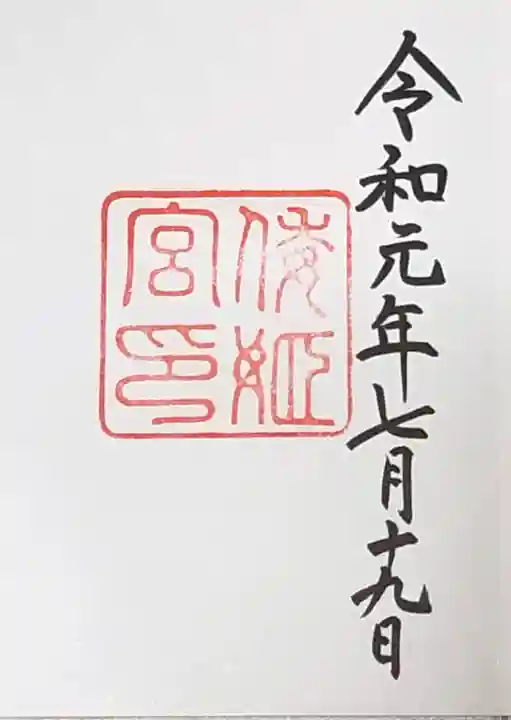 令和元年七月十九日
倭姫
宮印